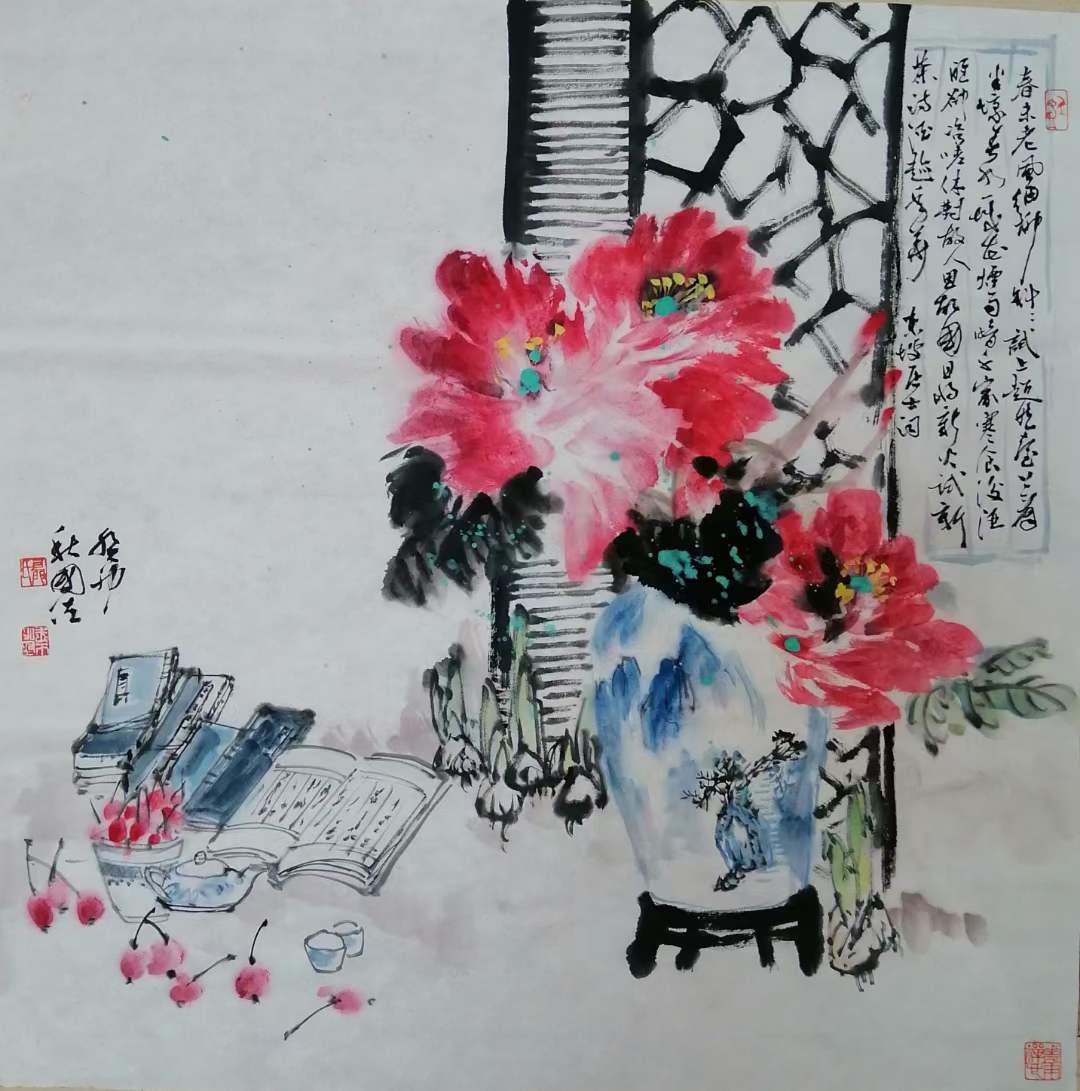 春未老風細柳斜：試上超然臺上看
半壕春水一城花煙雨暗千家寒食後酒
醒卻咨嗟休對故人思故國且將新火試新
茶詩酒趁年華 東坡居士詞
癸卯